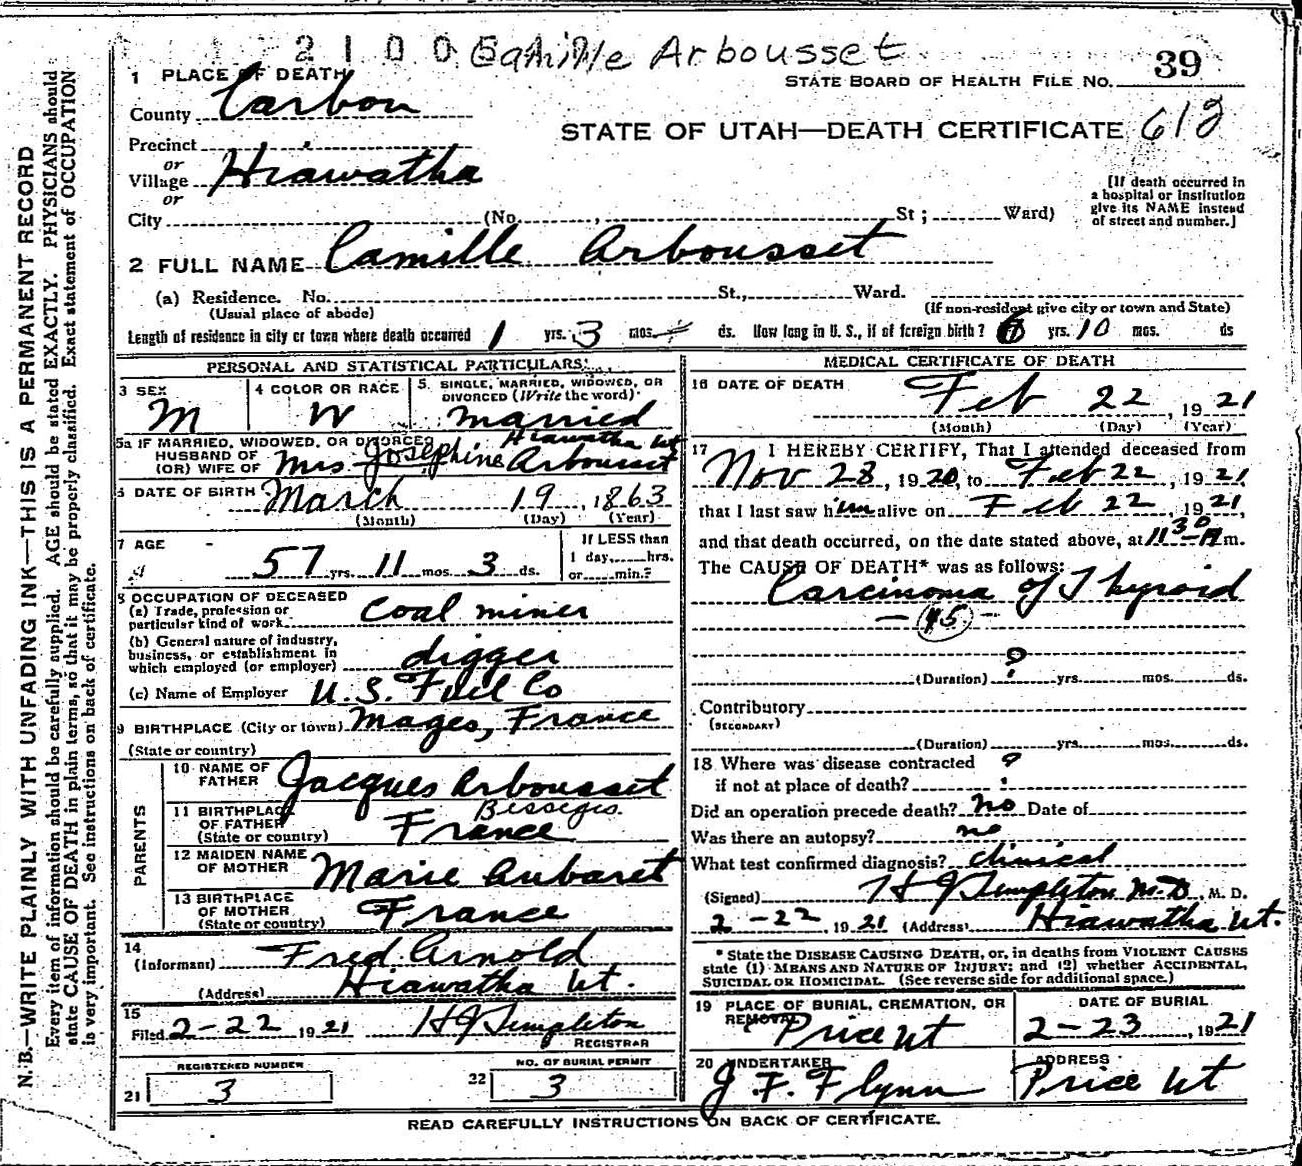 2 1 0 0 Camille Arbousset
39
1 PLACE OF DEATH
STATE BOARD OF HEALTH FILE NO.
County Carbon
STATE OF UTAH—DEATH CERTIFICATE 612
Precinct
or
Village Hiawatha
or
[If death occurred in
a hospital or institution
give its NAME instead
of street and number.]
City (No. , St; Ward)
2 FULL NAME Camille Arbousset
(a) Residence. No. St., Ward.
(Usual place of abode) (If non-resident give city or town and State)
Length of residence in city or town where death occurred 1 yrs. 3 mos. ds. How long in U. S., if of foreign birth? 6 yrs. 10 mos. ds
PERSONAL AND STATISTICAL PARTICULARS
3 SEX
M
4 COLOR OR RACE
W
5. SINGLE, MARRIED, WIDOWED, OR
DIVORCED (Write the word)
married
5a IF MARRIED, WIDOWED, OR DIVORCED Hiawatha Ut
HUSBAND OF
(OR) WIFE OF Mrs Josephine Arbousset
6 DATE OF BIRTH March 19, 1863
(Month) (Day) (Year)
7 AGE
57 yrs. 11 mos. 3 ds.
If LESS than
1 day, hrs.
or min.?
8 OCCUPATION OF DECEASED
(a) Trade, profession or
particular kind of work coal miner
(b) General nature of industry,
business, or establishment in
which employed (or employer) digger
(c) Name of Employer U. S. Fuel Co
9 BIRTHPLACE (City or town) Mages, France
(State or country)
PARENTS
10 NAME OF
FATHER Jacques Arbousset
11 BIRTHPLACE
OF FATHER
(State or country) Besseges. France
12 MAIDEN NAME
OF MOTHER Marie Aubaret
13 BIRTHPLACE
OF MOTHER
(State or country) France
14
(Informant) Fred Arnold
(Address) Hiawatha Ut.
15
Filed 2-22 1921 H J Templeton
REGISTRAR
REGISTERED NUMBER
21 3
NO. OF BURIAL PERMIT
22 3
MEDICAL CERTIFICATE OF DEATH
16 DATE OF DEATH
Feb 22, 1921
(Month) (Day) (Year)
17 I HEREBY CERTIFY, That I attended deceased from
Nov 28, 1920, to Feb 22, 1921
that I last saw him alive on Feb 22, 1921,
and that death occurred, on the date stated above, at 11 30 A m.
The CAUSE OF DEATH* was as follows:
Carcinoma of Thyroid
— 45 —
?
(Duration) yrs. mos. ds.
Contributory
(SECONDARY)
(Duration) yrs. mos. ds.
18 Where was disease contracted
if not at place of death? ?
Did an operation precede death? no Date of
Was there an autopsy? no
What test confirmed diagnosis? clinical
(Signed) H J Templeton M.D., M. D.
2-22 1921 (Address) Hiawatha Ut.
* State the DISEASE CAUSING DEATH, or, in deaths from VIOLENT CAUSES
state (1) MEANS AND NATURE OF INJURY; and (2) whether ACCIDENTAL,
SUICIDAL OR HOMICIDAL. (See reverse side for additional space.)
19 PLACE OF BURIAL, CREMATION, OR
REMOVAL Price Ut
DATE OF BURIAL
2-23, 1921
20 UNDERTAKER
J. F. Flynn
ADDRESS
Price Ut
READ CAREFULLY INSTRUCTIONS ON BACK OF CERTIFICATE.
N. B.—WRITE PLAINLY WITH UNFADING INK—THIS IS A PERMANENT RECORD
Every item of information should be carefully supplied. AGE should be stated EXACTLY. PHYSICIANS should
state CAUSE OF DEATH in plain terms, so that it may be properly classified. Exact statement of OCCUPATION
is very important. See instructions on back of certificate.